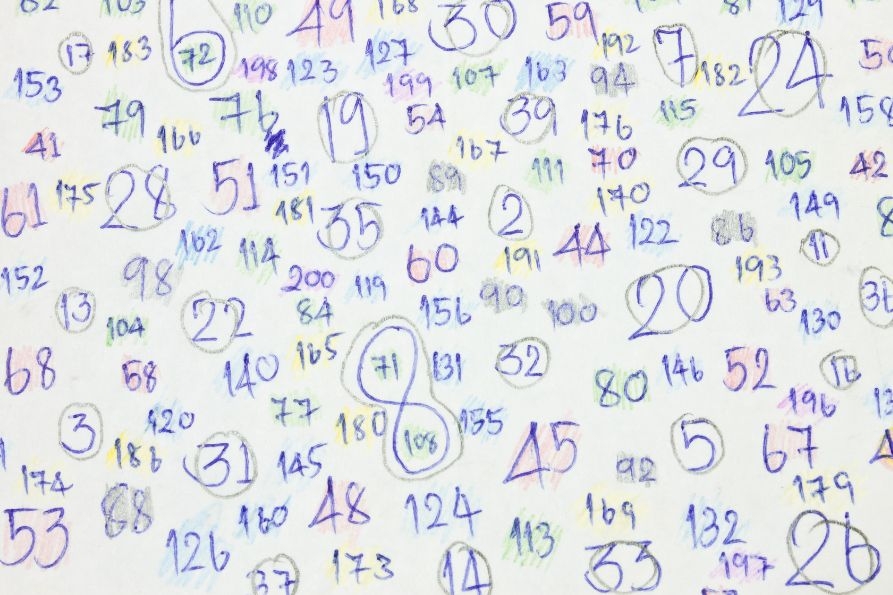 103 110 49 168 30 59 129
17 183 72 198 123 127 199 107 163 192 94 7 182 24
153 79 166 76 19 54 39 176 115 158
41 167 111 70 29 105 42
61 175 28 51 151 150 89 170 149
181 35 144 2 44 122 86 11
162 114 60 191 193
152 98 200 119 90 100 20 63
13 104 22 84 156 130
68 58 140 165 8 71 131 32 80 146 52 16
3 120 77 180 108 155 45 5 67 196
174 186 31 145 92 179
53 88 160 48 124 169 132
126 113 197 26
37 173 14 33